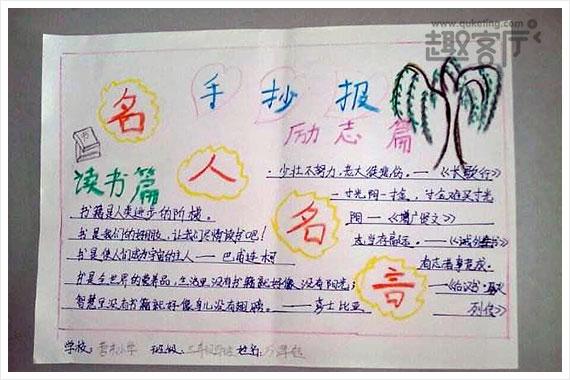 www.quketing.com
趣客厅
手抄报
名人名言
励志篇
读书篇
书籍是人类进步的阶梯。
书是我们的好朋友,让我们尽情读书吧!
书是使人们成为宇宙的主人——巴甫连柯
书是全世界的营养品,生活里没有书籍就好像没有阳光;
智慧里没有书籍就好像鸟儿没有翅膀。——莎士比亚
·少壮不努力,老大徒悲伤。——《长歌行》
一寸光阴一寸金,寸金难买寸光
阴——《增广贤文》
志当存高远。——《诫外甥书》
有志者事竟成。
——《后汉书·
列传》
学校: 小学 班级: 三年级 姓名: